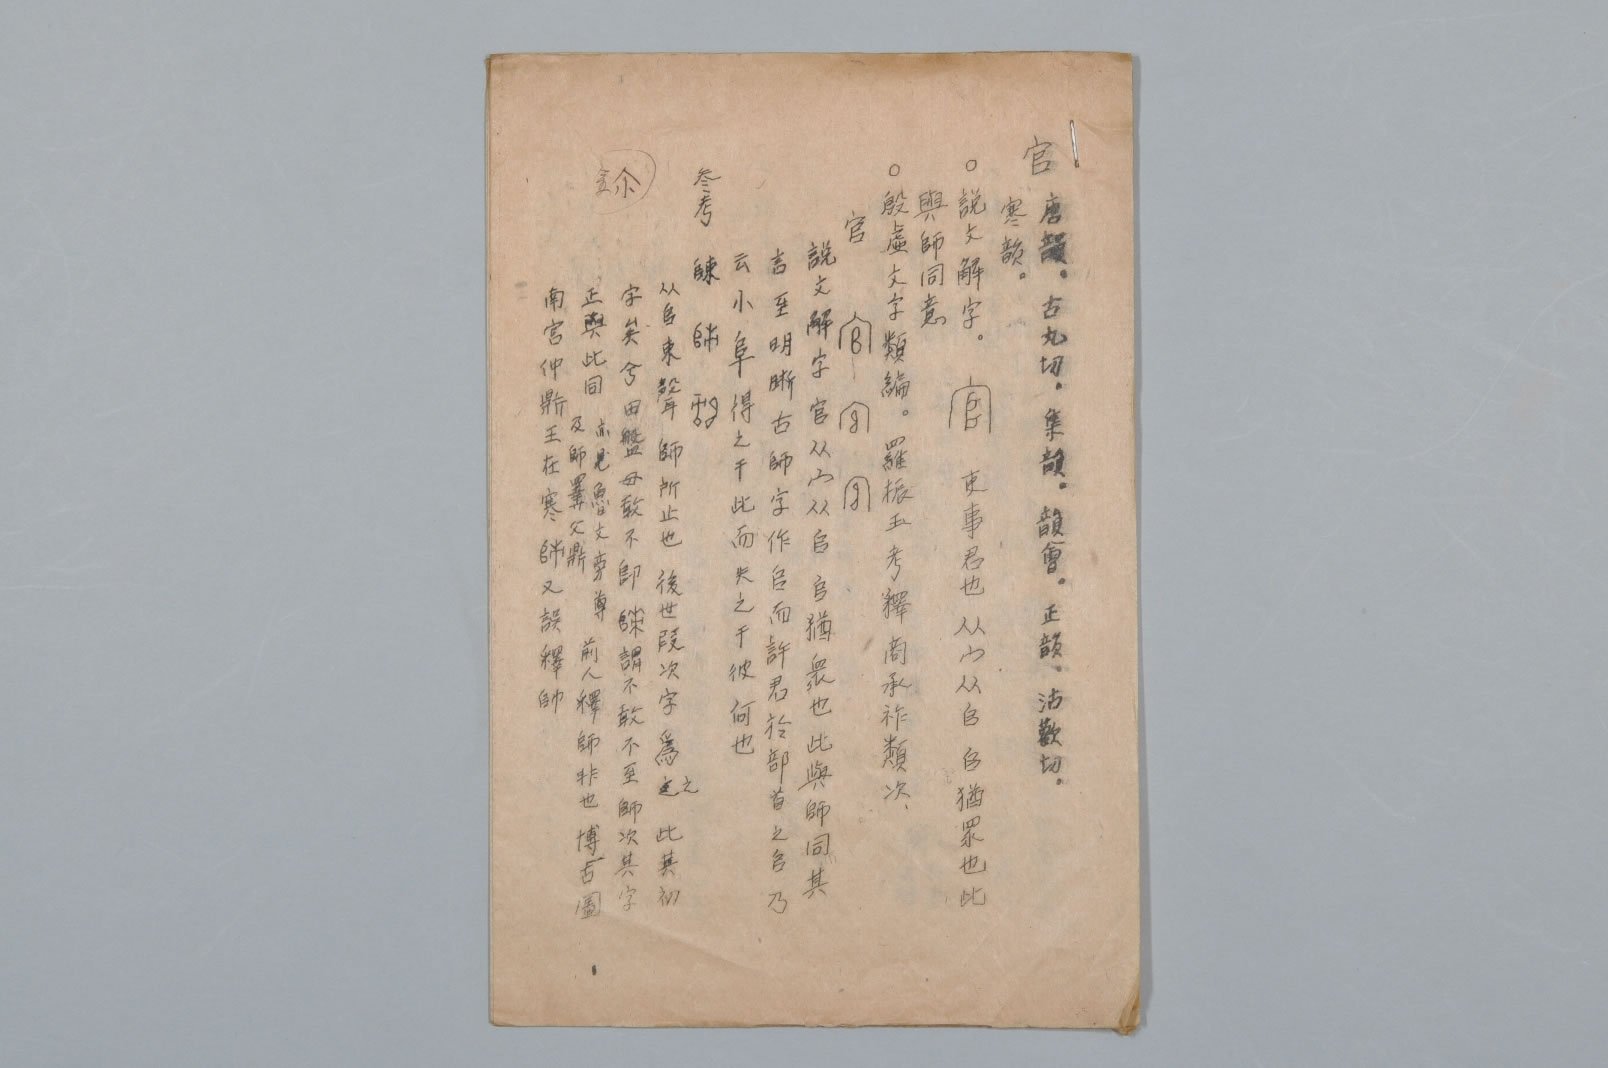 官 唐韻。古丸切．集韻．韻會．正韻．沽歡切．
寒韻。
○說文解字。 官 吏事君也从宀从𠂤𠂤猶眾也此
與師同意
○殷虛文字類編。羅振玉考釋商承祚類次、
官
說文解字官从宀从𠂤𠂤猶眾也此與師同其
言至明晰古師字作𠂤而許君於部首之𠂤乃
云小阜得之于此而失之于彼何也
參考
从𠂤東聲師所止也後世叚次字爲之此其初
字矣兮田盤毋敢不即 謂不敢不至師次其字
正與此同 亦見 尊 前人釋師非也博古圖
及師 父鼎
南宮仲鼎王在寒 又誤釋帥